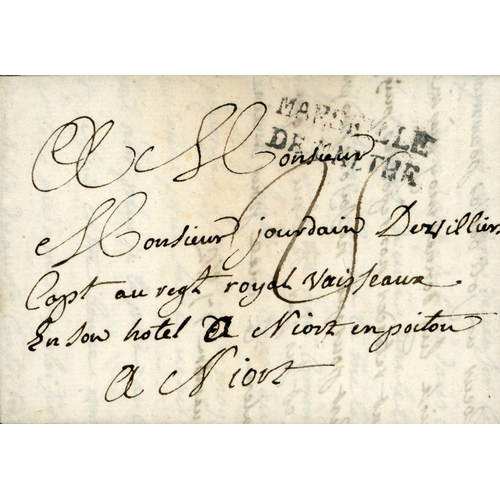 MARSEILLE
DE MALTHE
A Monsieur
Monsieur jourdain Devilliers
Capt au regt royal vaisseaux
En son hotel a Niort en poitou
a Niort